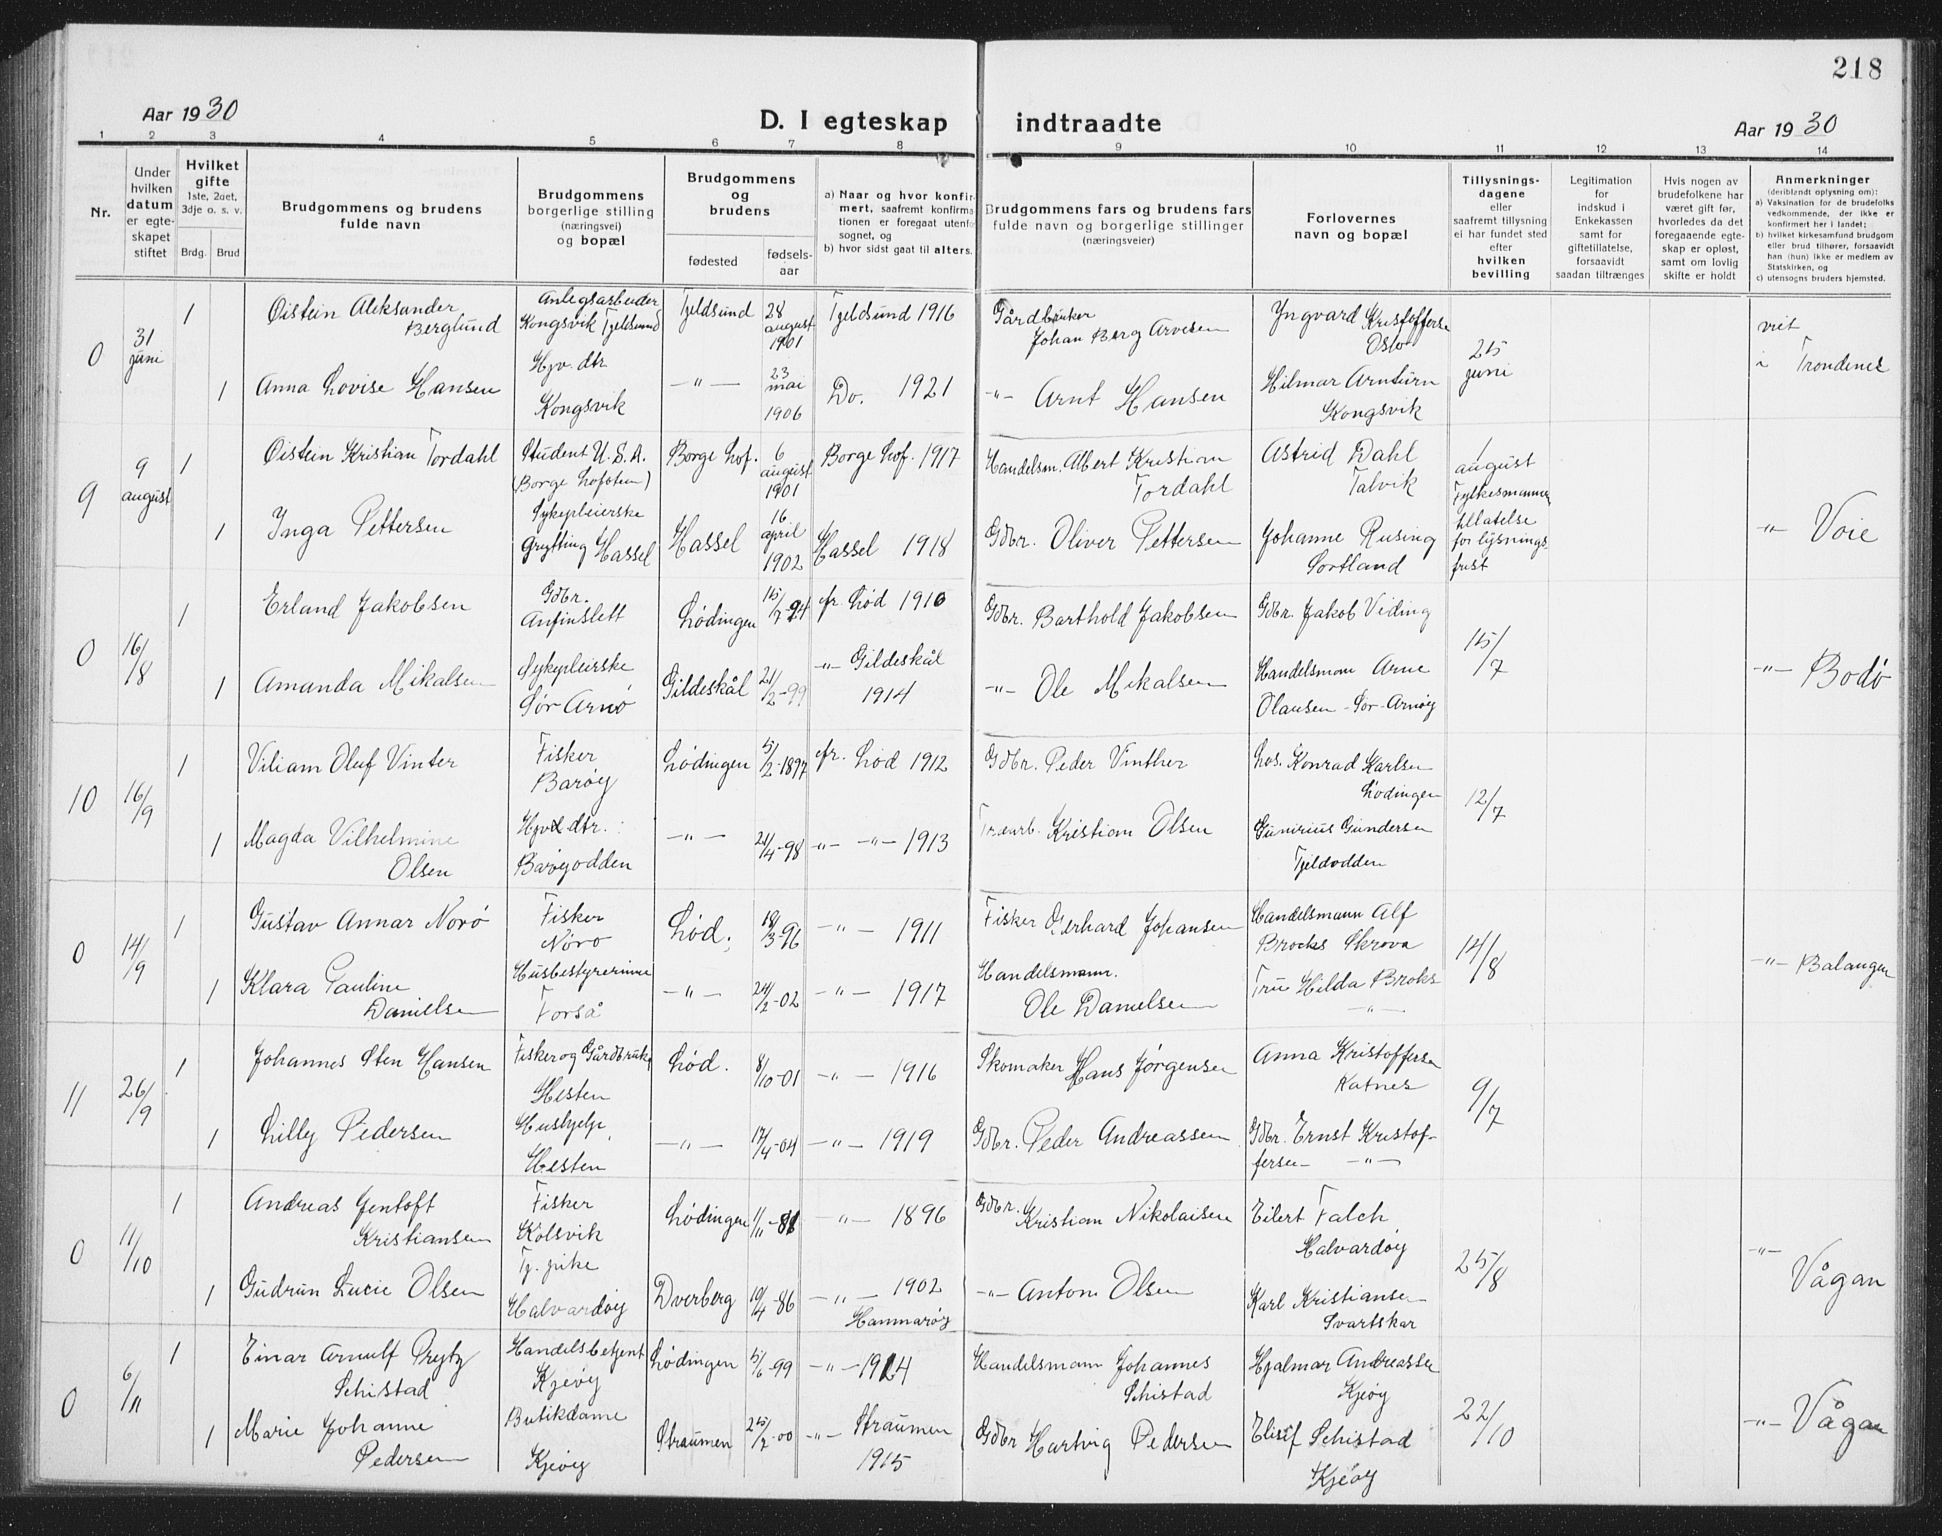 218
Aar 1930
D. I egteskap indtraadte
Aar 1930
1 2 3 4 5 6 7 8 9 10 11 12 13 14
Nr.
Under
hvilken
datum
er egte-
skapet
stiftet
Hvilket
gifte
1ste, 2det,
3dje o. s. v.
Brdg. Brud
Brudgommens og brudens
fulde navn
Brudgommens
borgerlige stilling
(næringsvei)
og bopæl
Brudgommens
og
brudens
fødested
fødsels-
aar
a) Naar og hvor konfir-
mert, saafremt konfirma-
tionen er foregaat utenfor
sognet, og
b) hvor sidst gaat til alters.
Brudgommens fars og brudens fars
fulde navn og borgerlige stillinger
(næringsveier)
Forlovernes
navn og bopæl
Tillysnings-
dagene
eller
saafremt tillysning
ei har fundet sted
efter
hvilken
bevilling
Legitimation
for
indskud i
Enkekassen
samt for
giftetillatelse,
forsaavidt
saadan tiltrænges
Hvis nogen av
brudefolkene har
været gift før,
hvorledes da det
foregaaende egte-
skap er opløst,
samt om lovlig
skifte er holdt
Anmerkninger
(deriblandt oplysning om):
a) Vaksination for de brudefolks
vedkommende, der ikke er
konfirmert her i landet;
b) hvilket kirkesamfund brudgom
eller brud tilhører, forsaavidt
han (hun) ikke er medlem av
Statskirken, og
c) utensogns bruders hjemsted.
0
31
juni
1
Øistein Aleksander
Berglund
Anlegsarbeider
Kongsvik Tjeldsund
Tjeldsund
28
august
1901
Tjeldsund 1916
Gårdbruker
Johan Berg Arvesen
Yngvard Kristoffersen
Oslo
25
juni
viet
i Trondenes
1
Anna Lovise Hansen
Hjv. dtr
Kongsvik
-"-
23
mai
1906
Do. 1921
-"- Arnt Hansen
Hilmar Arntzen
Kongsvik
9
9
august
1
Øistein Kristian Tordahl
Student U.S.A.
(Borge Lofoten)
Borge Lof.
6
august
1901
Borge Lof. 1917
Handelsm. Albert Kristian
Tordahl
Astrid Dahl
Talvik
1
august
Fylkesmannens
tillatelse
for lysnings-
frist
1
Inga Pettersen
Sykepleierske
Grytting Hassel
Hassel
16
april
1902
Hassel 1918
Gdbr. Oliver Pettersen
Johanne Rusing
Sortland
-"- Voie
0
16/8
1
Erland Jakobsen
Gdbr.
Anfinslett
Lødingen
15/7-94
fr. Lød 1910
Gdbr. Barthold Jakobsen
Gdbr. Jakob Viding
15/7
1
Amanda Mikalsen
Sykepleirske
Sør Arnø
Gildeskål
21/2-99
-"- Gildeskål
1914
-"- Ole Mikalsen
Handelsmam Arne
Olausen - Sør-Arnøy
-"- Bodø
10
16/9
1
Viliam Oluf Vinter
Fisker
Barøy
Lødingen
5/2-1897
fr. Lød 1912
Gdbr. Peder Vinther
Los. Konrad Karlsen
Lødingen
12/7
1
Magda Vilhelmine
Olsen
Hjv. dtr.
Barøyodden
-"-
21/4-98
-"- -"- 1913
Træarb. Kristian Olsen
Gunirius Gundersen
Tjeldodden
0
14/9
1
Gustav Annar Norø
Fisker
Nöro
Lød.
18/3-96
-"- 1911
Fisker Gerhard Johansen
Handelsmann Alf
Brocks Skrova
14/8
1
Klara Pauline
Danielsen
Husbestyrerinne
Forså
-"-
24/2-02
-"- 1917
Handelsmann.
Ole Danielsen
Fru Hilda Broks
-"-
-"- Balangen
11
26/9
1
Johannes Sten Hansen
Fisker og Gårdbruker
Hesten
Lød.
8/10-01
-"- 1916
Skomaker Hans Jørgensen
Anna Kristoffersen
Katnes
9/7
1
Lilly Pedersen
Hushjelp
Hesten
-"-
17/4-04
-"- 1919
Gdbr. Peder Andreassen
Gdbr. Ernst Kristof-
fersen -"-
0
11/10
1
Andreas Gentoft
Kristiansen
Fisker
Kolsvik
Lødingen
1/11-81
-"- 1896
Gdbr. Kristian Nikolaisen
Eilert Falch
Halvardøy
25/8
-"-
Vågan
1
Gudrun Lucie Olsen
Tj. pike
Halvardøy
Dverberg
19/4-86
-"- 1902
Hammarøy
-"- Anton Olsen
Karl Kristiansen
Svartskar
0
6/11
1
Einar Arnulf Prytz
Schistad
Handelsbetjent
Kjeøy
Lødingen
5/6-99
-"- 1914
Handelsmann Johannes
Schistad
Hjalmar Andreassen
Kjeøy
22/10
1
Marie Johanne
Pedersen
Butikdame
Kjeøy
Straumen
25/7-00
-"- Straumen
1915
Gdbr Hartvig Pedersen
Elisef Schistad
Kjeøy
-"- Vågan